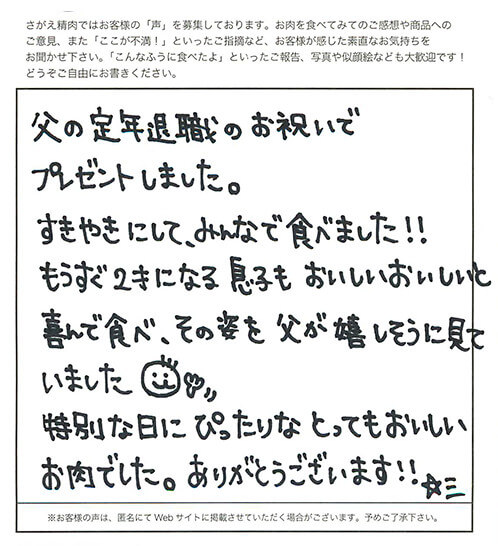 さがえ精肉ではお客様の「声」を募集しております。お肉を食べてみてのご感想や商品への
ご意見、また「ここが不満！」といったご指摘など、お客様が感じた素直なお気持ちを
お聞かせ下さい。「こんなふうに食べたよ」といったご報告、写真や似顔絵なども大歓迎です！
どうぞご自由にお書きください。
父の定年退職のお祝いで
プレゼントしました。
すきやきにして、みんなで食べました!!
もうすぐ2才になる息子も おいしいおいしいと
喜んで食べ、その姿を父が嬉しそうに見て
いました
特別な日にぴったりな とってもおいしい
お肉でした。ありがとうございます!!
※お客様の声は、匿名にてWebサイトに掲載させていただく場合がございます。予めご了承下さい。